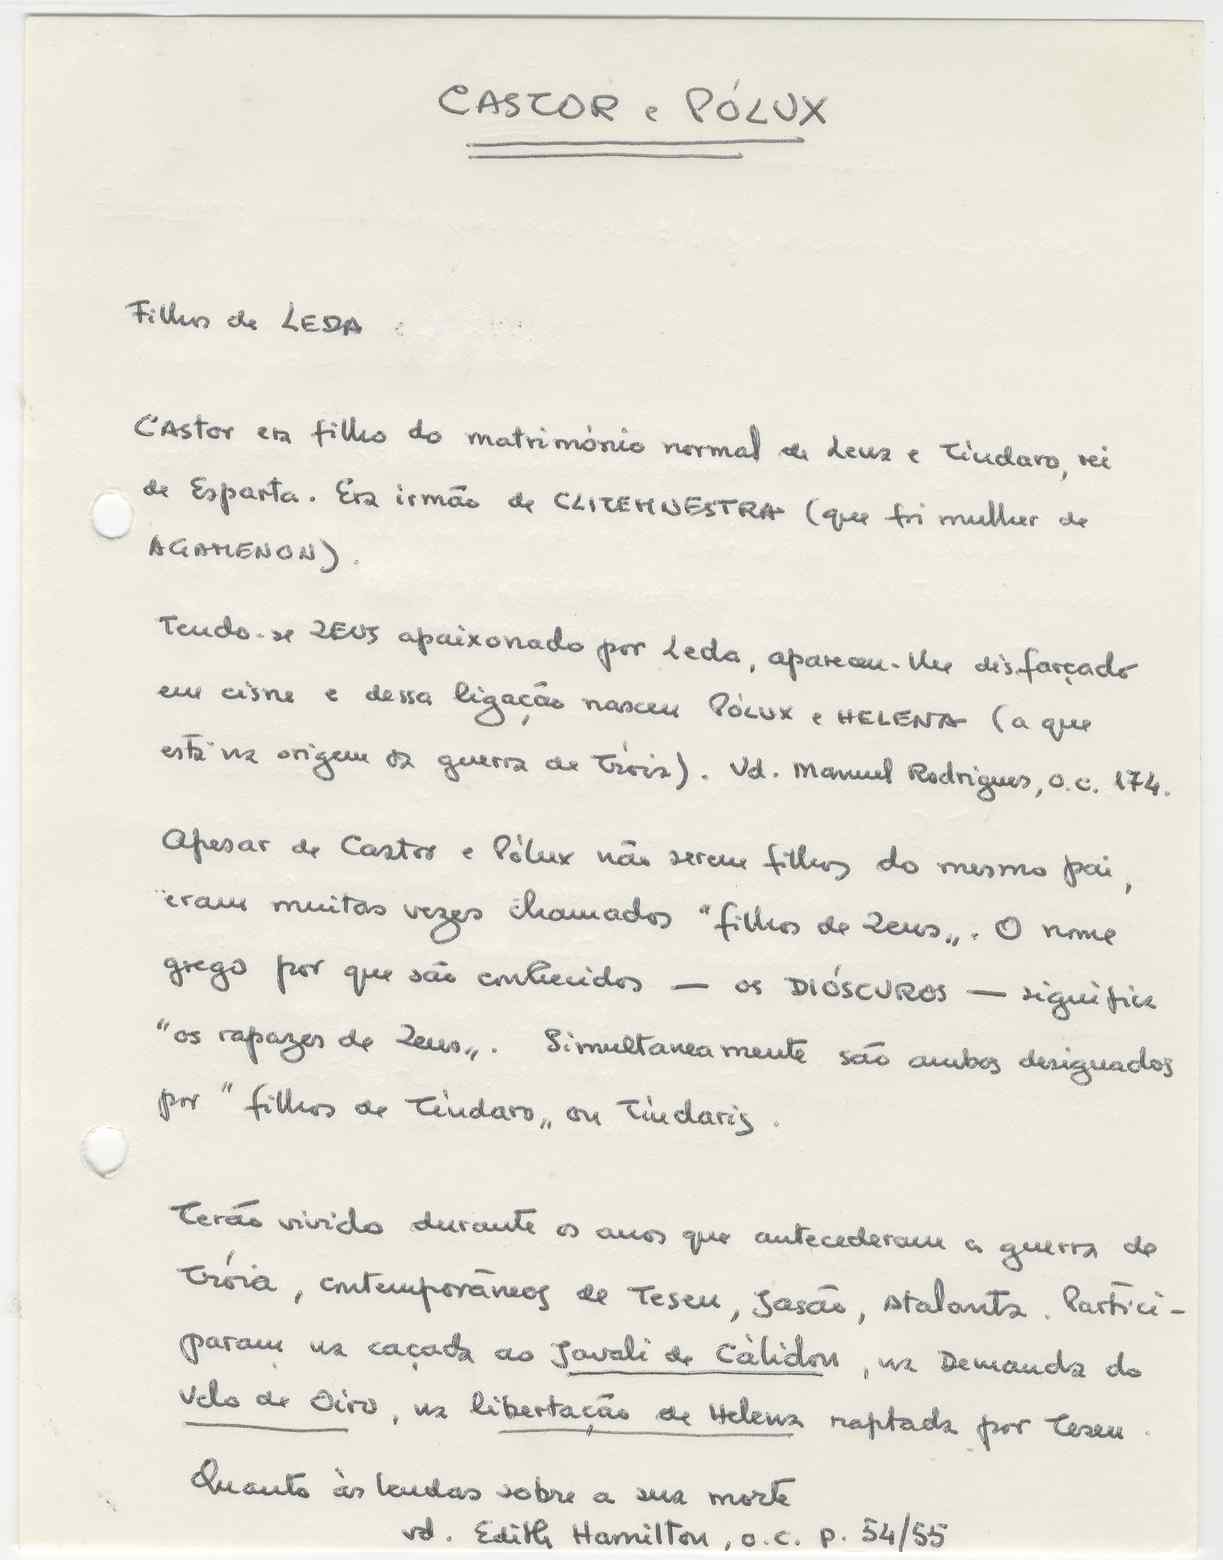 CASTOR e PÓLUX
Filhos de LEDA
Castor era filho do matrimónio normal de Leda e Tíndaro, rei
de Esparta. Era irmão de CLITEMNESTRA (que foi mulher de
AGAMENON).
Tendo-se ZEUS apaixonado por Leda, apareceu-lhe disfarçado
em cisne e dessa ligação nasceu PÓLUX e HELENA (a que
está na origem da guerra de Tróia). Vd. Manuel Rodrigues, o.c. 174.
Apesar de Castor e Pólux não serem filhos do mesmo pai,
eram muitas vezes chamados "filhos de Zeus„. O nome
grego por que são conhecidos — os DIÓSCUROS — significa
"os rapazes de Zeus„. Simultaneamente são ambos designados
por "filhos de Tíndaro„ ou Tíndaris.
Terão vivido durante os anos que antecederam a guerra de
Tróia, contemporâneos de Teseu, Jasão, Atalanta. Partici-
param na caçada ao Javali de Cálidon, na Demanda do
Velo de Oiro, na libertação de Helena raptada por Teseu.
Quanto às lendas sobre a sua morte
vd. Edith Hamilton, o.c. p. 54/55